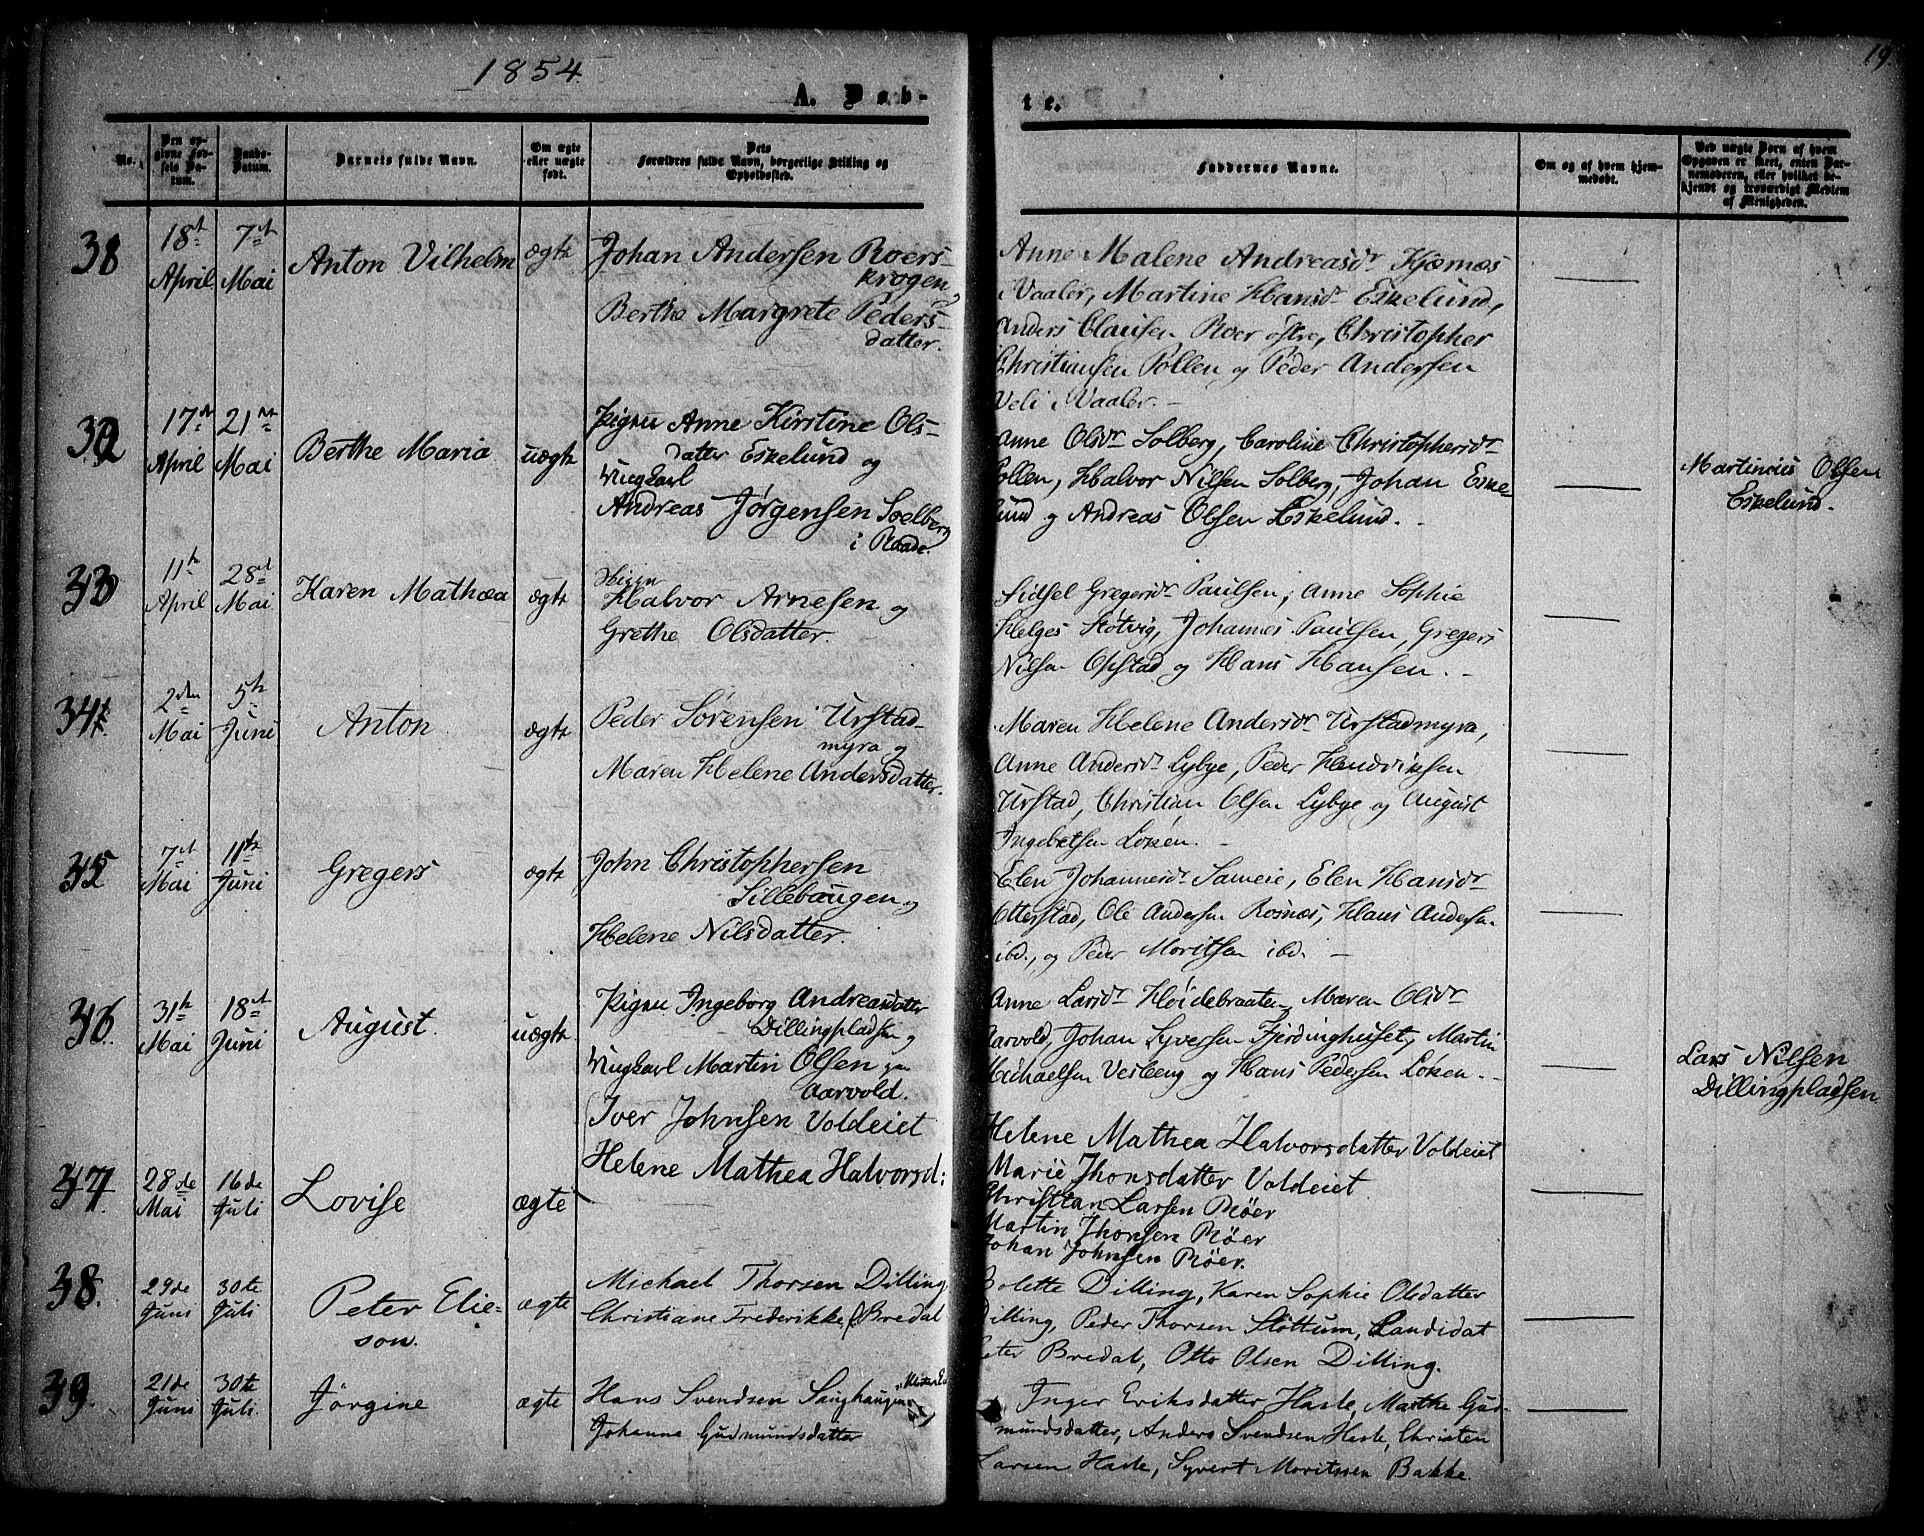 1854.
19.
A. Døb-
te.
No.
Den op-
givne Fød-
sels Da-
tum.
Daabs-
Datum.
Barnets fulde Navn.
Om ægte
eller uægte
født.
Dets
Forældres fulde Navn, borgerlige Stilling og
Opholdssted.
Faddernes Navne.
Om og af hvem hjem-
medøbt.
Ved uægte Børn af hvem
Opgaven er skeet, enten Bar-
nemoderen, eller hvilket be-
kjendt og troværdigt Medlem
af Menigheden.
18de
April
7de
Mai
Anton Vilhelm
ægte
Johan Andersen Roers-
krogen,
Berthe Margrete Peders-
datter.
Anne Malene Andreasdr. Kjærnæs
i Vaaler, Martine Hansdr. Eskelund,
Anders Clausen Roer østre, Christopher
Christiansen Pollen og Peder Andersen
Veli i Vaaler.
17de
April
21de
Mai
Berthe Maria
uægte
Pigen Anne Kirstine Ols-
datter Eskelund og
Ungkarl
Andreas Jørgensen Soelberg
i Raade.
Anne Olsdr. Solberg, Caroline Christophersdr.
Pollen, Halvor Nilsen Solberg, Johan Eske-
lund og Andreas Olsen Eskelund.
Martinius Olsen
Eskelund.
11te
April
28de
Mai
Karen Mathæa
ægte
Halvor Arnesen og
Grethe Olsdatter.
Sidsel Gregersdr. Paulsen, Anne Sophie
Helges Støtvig, Johannes Paulsen, Gregers
Nilsen Opstad og Hans Hansen.
34
2den
Mai
5te
Juni
Anton
ægte
Peder Sørensen Urstad-
myra og
Maren Helene Andersdatter.
Maren Helene Andersdr. Urstadmyra,
Anne Andersdr. Lybye, Peder Hendriksen
Urstad, Christian Olsen Lybye og August
Ingebretsen Løken.
7de
Mai
11te
Juni
Gregers
ægte
John Christophersen
Sillebaugen og
Helene Nilsdatter.
Elen Johannesdr. Sameie, Elen Hansdr.
Otterstad, Ole Andersen Rosnæs, Klaus Andersen
ibd., og Peder Moritsen ibd.
36
31te
Mai
18de
Juni
August.
uægte
Pigen Ingeborg Andreasdatter
Dillingpladsen og
Ungkarl Martin Olsen
Aarvold.
Anne Larsdr. Høidebraaten, Maren Olsdr.
Aarvold, Johan Syversen Fjerdinghuset, Martin
Michaelsen Vesleeng og Hans Pedersen Løken.
Lars Nilsen
Dillingpladsen
37.
28de
Mai
16de
Juli
Lovise
ægte
Iver Johnsen Voldeiet
Helene Mathea Halvorsd:
Helene Mathea Halvorsdatter Voldeiet
Marie Jhonsdatter Voldeiet
Christian Larsen Røer
Martin Jhonsen Røer
Johan Johnsen Røer.
38.
29de
Juni
30te
Juli
Peter Elie-
son.
ægte
Michael Thorsen Dilling
Christiane Frederikke f. Bredal
Bolette Dilling, Karen Sophie Olsdatter
Dilling, Peder Thorsen Slottum, Candidat
Peter Bredal, Otto Olsen Dilling.
39.
21de
Juni
30te
Juli.
Jørgine
ægte
Hans Svendsen Saughaugen
Johanne Gudmundsdatter
Inger Eriksdatter Hasle, Marthe Gud-
mundsdatter, Anders Svendsen Hasle, Christen
Larsen Hasle, Syvert Moritssen Bakke.